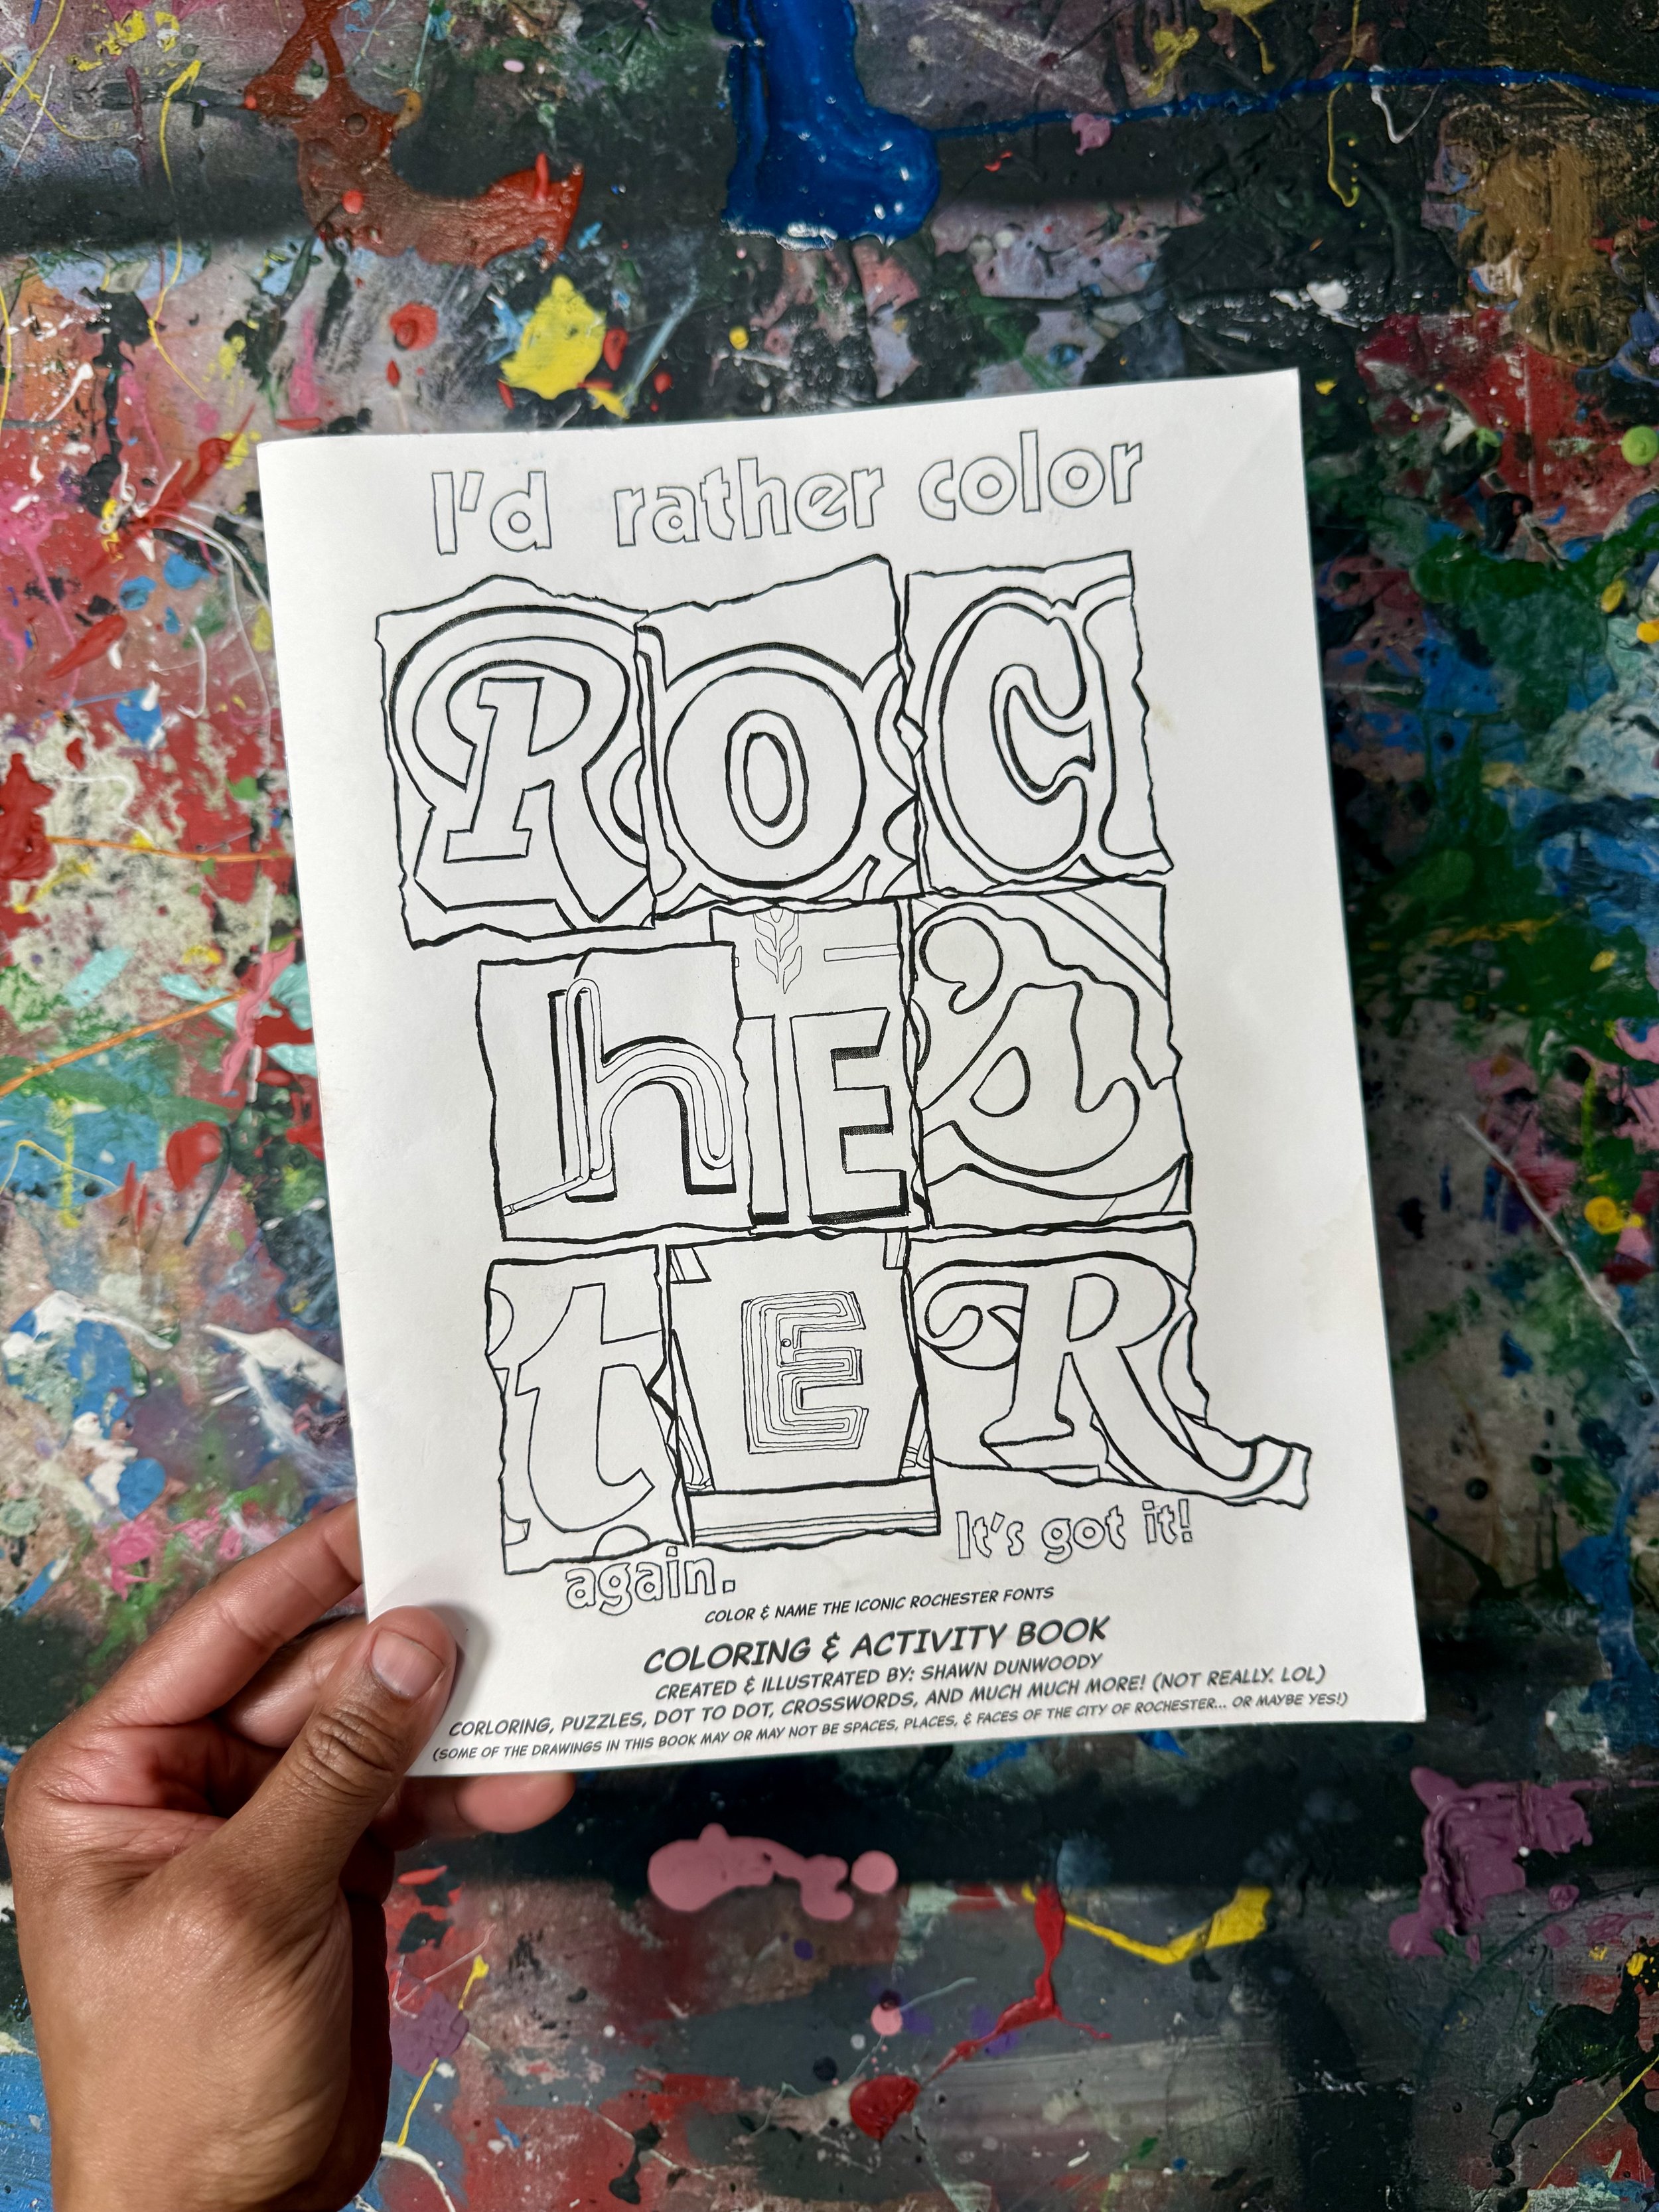 I'd rather color
ROC
hEs
tER
again. It's got it!
COLOR & NAME THE ICONIC ROCHESTER FONTS
COLORING & ACTIVITY BOOK
CREATED & ILLUSTRATED BY: SHAWN DUNWOODY
CORLORING, PUZZLES, DOT TO DOT, CROSSWORDS, AND MUCH MUCH MORE! (NOT REALLY. LOL)
(SOME OF THE DRAWINGS IN THIS BOOK MAY OR MAY NOT BE SPACES, PLACES, & FACES OF THE CITY OF ROCHESTER... OR MAYBE YES!)